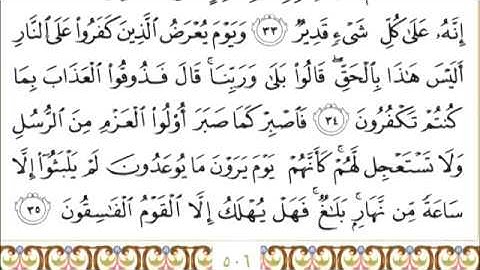 إِنَّهُۥ عَلَىٰ كُلِّ شَىْءٍ قَدِيرٌ ٣٣ وَيَوْمَ يُعْرَضُ ٱلَّذِينَ كَفَرُوا۟ عَلَى ٱلنَّارِ
أَلَيْسَ هَٰذَا بِٱلْحَقِّ ۖ قَالُوا۟ بَلَىٰ وَرَبِّنَا ۚ قَالَ فَذُوقُوا۟ ٱلْعَذَابَ بِمَا
كُنتُمْ تَكْفُرُونَ ٣٤ فَٱصْبِرْ كَمَا صَبَرَ أُو۟لُوا۟ ٱلْعَزْمِ مِنَ ٱلرُّسُلِ
وَلَا تَسْتَعْجِل لَّهُمْ ۚ كَأَنَّهُمْ يَوْمَ يَرَوْنَ مَا يُوعَدُونَ لَمْ يَلْبَثُوٓا۟ إِلَّا
سَاعَةً مِّن نَّهَارٍۭ ۚ بَلَٰغٌ ۚ فَهَلْ يُهْلَكُ إِلَّا ٱلْقَوْمُ ٱلْفَٰسِقُونَ ٣٥
٥٠٦